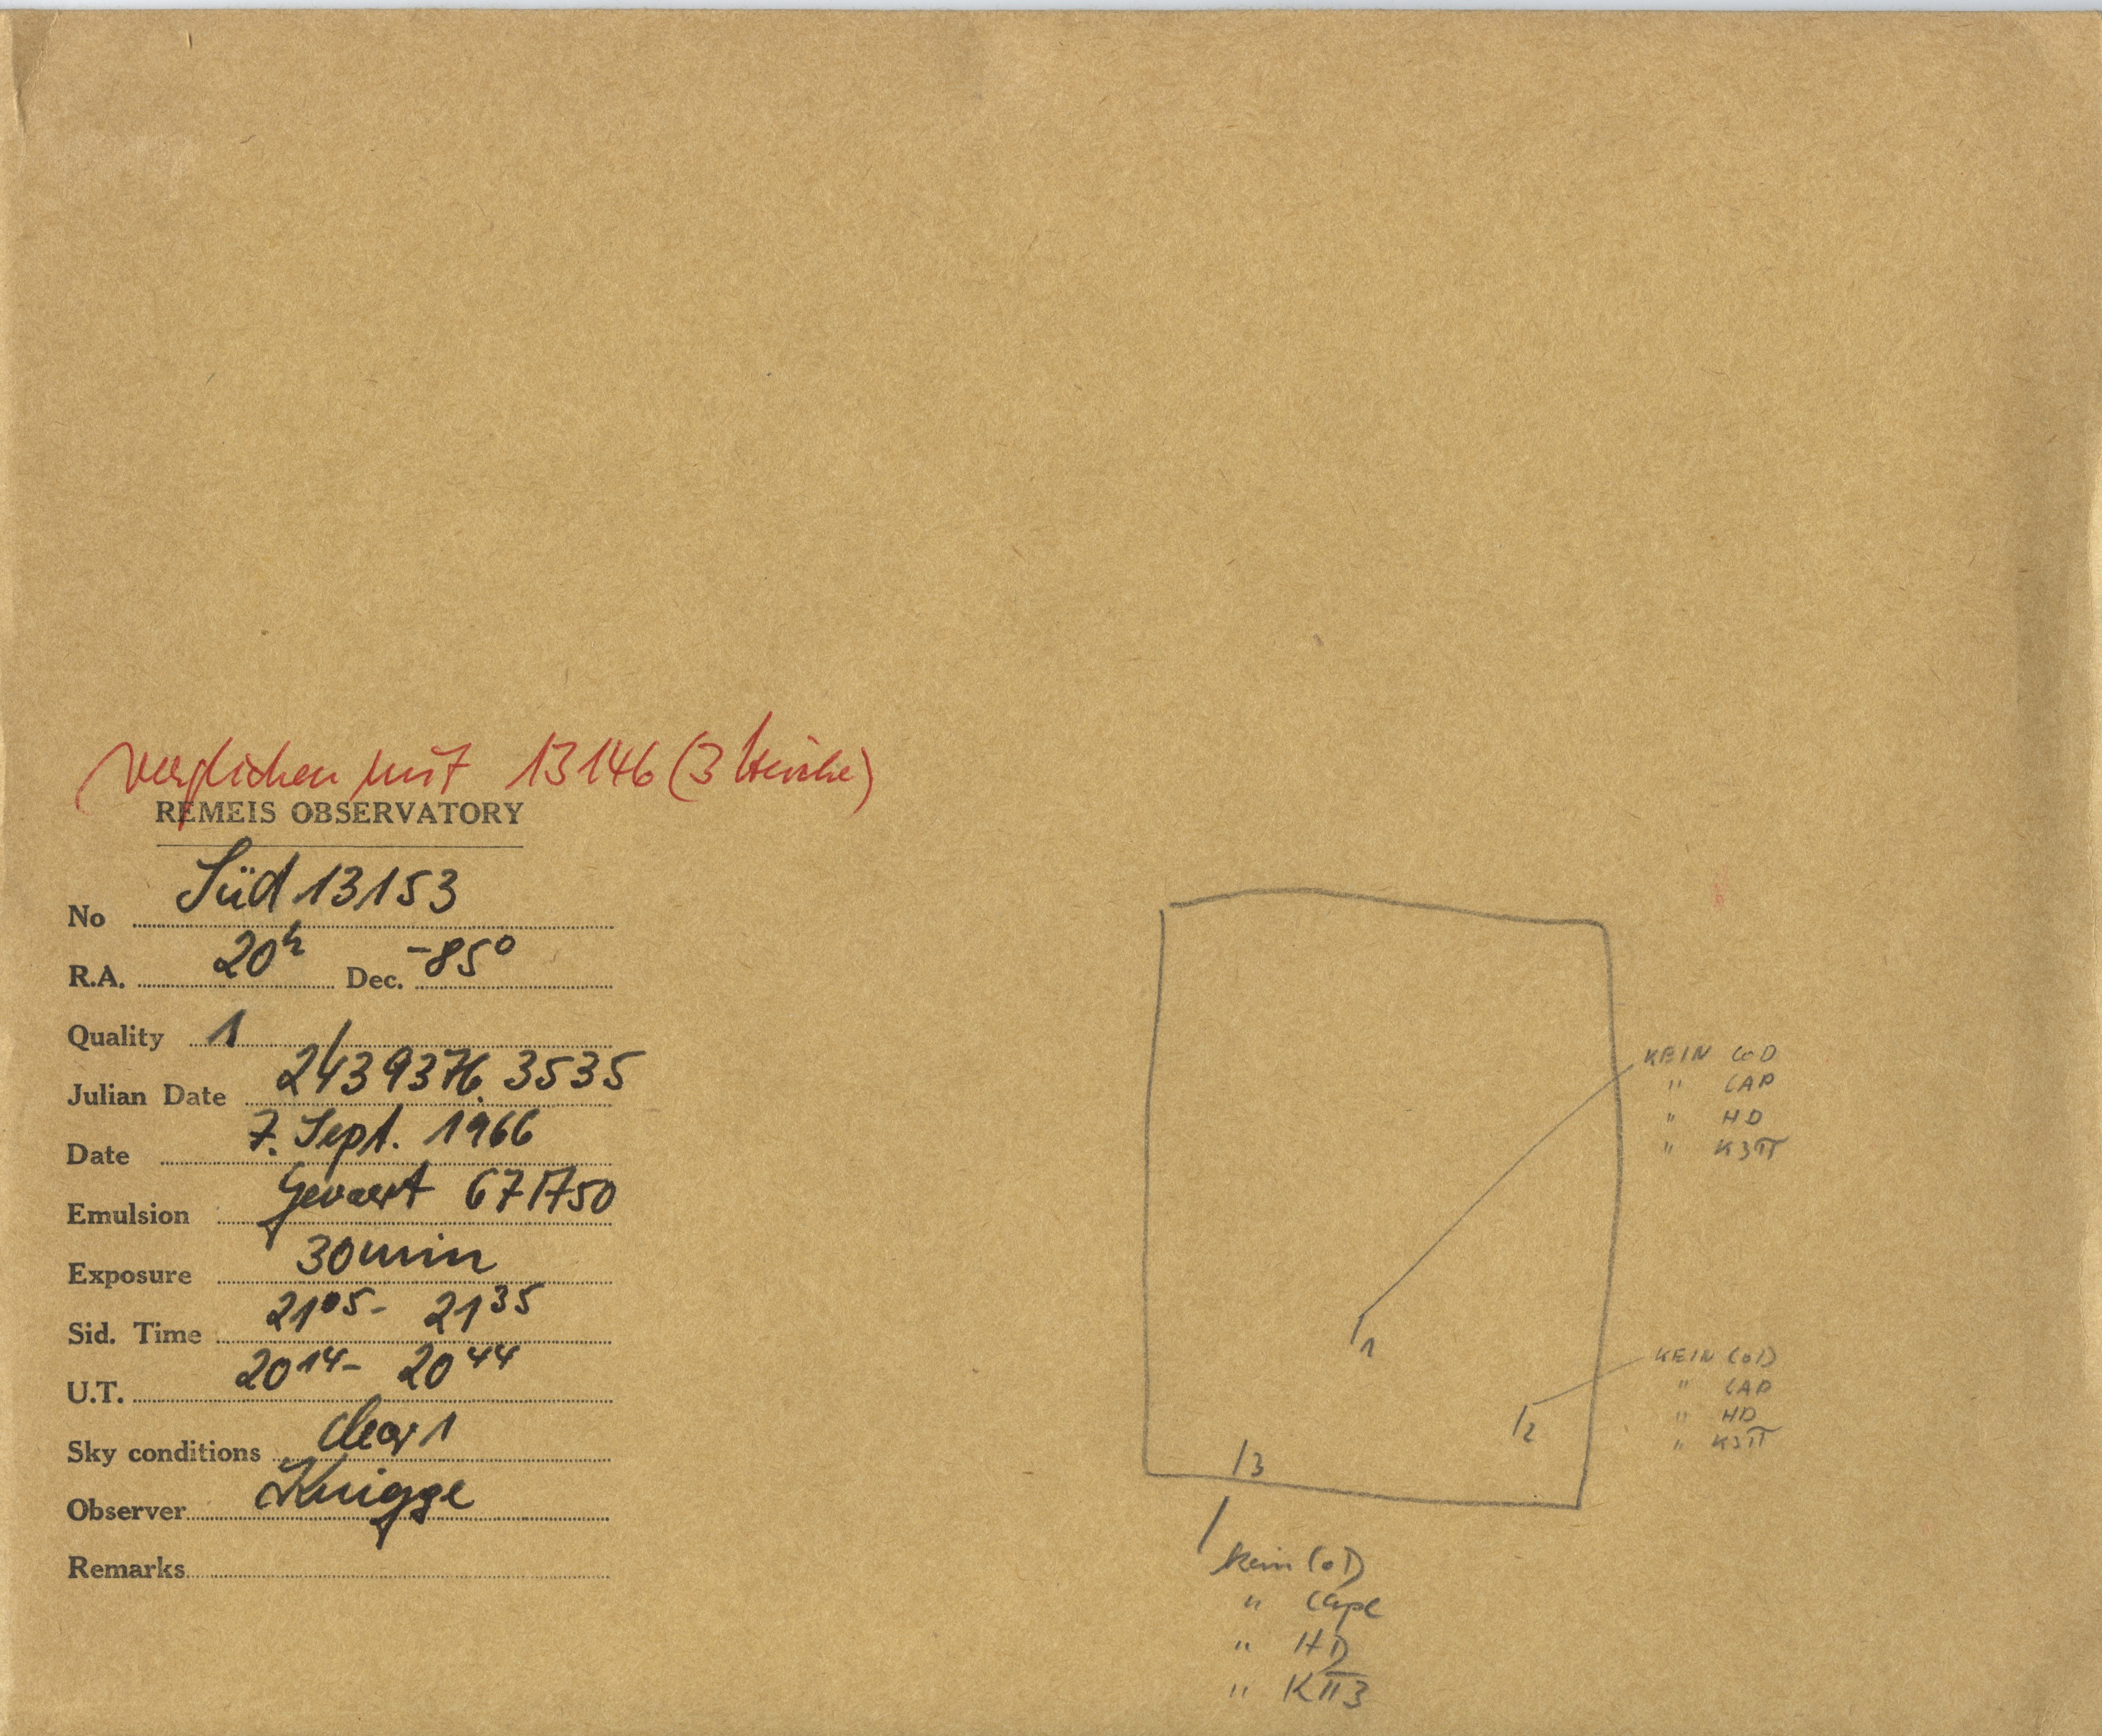 verglichen mit 13146 (3 Striche)
REMEIS OBSERVATORY
No Süd 13153
R.A. 20h Dec. -85°
Quality 1
Julian Date 2439376.3535
Date 7. Sept. 1966
Emulsion Gevaert 67A50
Exposure 30min
Sid. Time 21 05 - 21 35
U.T. 20 14 - 20 44
Sky conditions clear 1
Observer Knigge
Remarks
KEIN CoD
" CAP
" HD
" K3π
1
KEIN CoD
" CAP
" HD
" K3π
2
3
Kein CoD
" Cape
" HD
" Kπ3